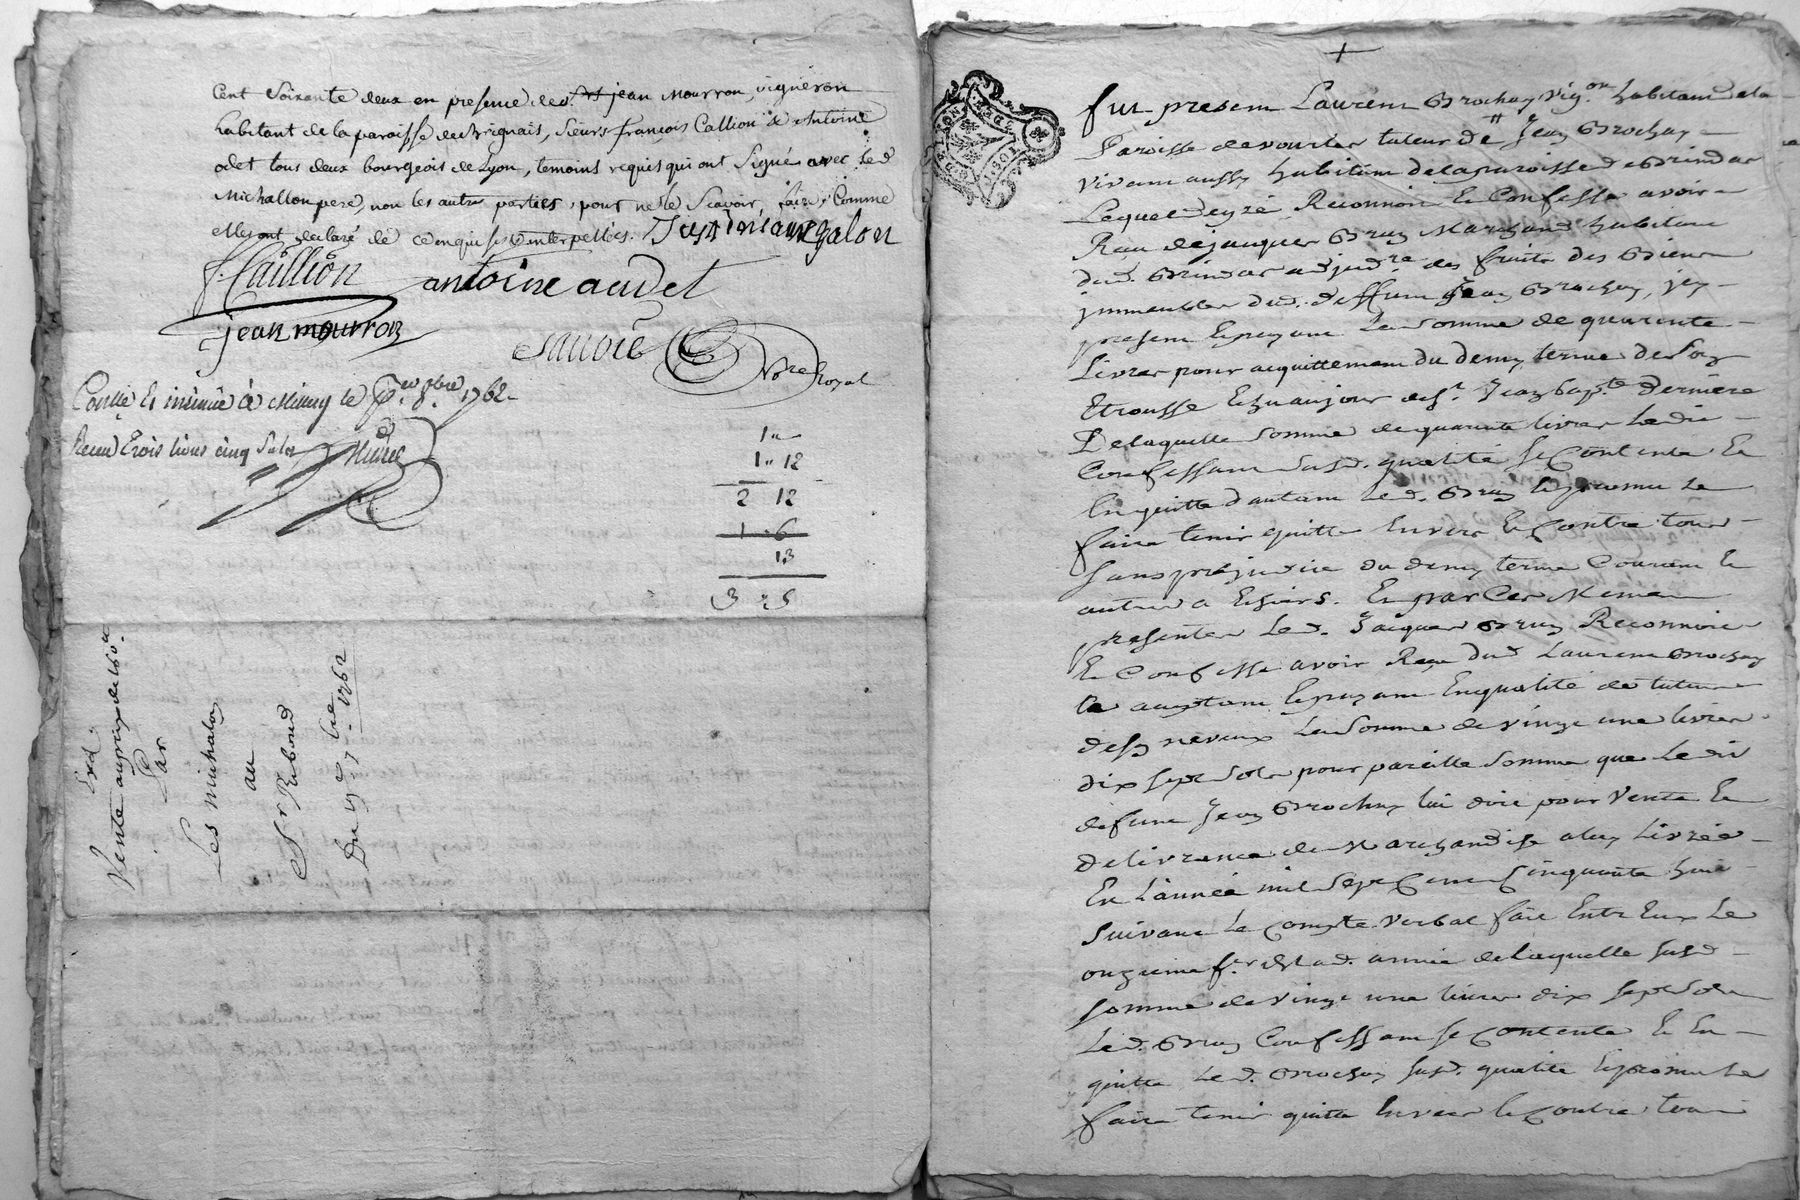 Cent Soixante deux en presence de s.rs jean Mourron, vigneron
habitant de la paroisse de Brignais, sieurs françois Callion & Antoine
odet tous deux bourgeois de Lyon, temoins requis qui ont Signé avec Led
Michallon pere, non les autres parties, pour ne le Scavoir faire, Comme
elles ont declaré de ce enquises & interpellées.
f. Caillion antoine audet
jean mourron
Sauoie Nore Royal
Conllé et insinué à Millery le 8.bre 1762
Receu trois livres cinq Sols
1 "
1 " 12
2 12
1 " 6
13
3 " 5
Exd.
Vente au prix de 160ll
Par
Les Michalon
au
Sr Ruboud
Du 7bre 1762
+
fut present Laurent Brochay Vig.on habitant de la
Paroisse de vourles tuteur de Jean Brochay
vivant aussy habitant de la paroisse de Brindas
Lequel de gré Reconnoit et Confesse avoir
Reçu de jacques Bruy Marchand habitant
dud. Brindas adjud.re des fruits des Biens
immeubles dud. deffunt Jean Brochay, icy
present et payant La somme de quarante
Livres pour acquittement du demy terme de
Etrousse Echu au jour de s.t Jean bap.te derniere
De laquelle somme de quarante livres Ledit
Confessant susd. qualité se Contente Et
En quitte d'autant Led. Bruy et promet Le
faire tenir quitte Envers et Contre tous
sans prejudice du demy terme Courant et
autres a Echoirs. Et par Ces Memes
presentes Led. Jacques Bruy Reconnoit
Et Confesse avoir Reçu dud Laurent Brochay
acceptant Et payant En qualité de tuteur
des neveux La somme de vingt une livres
dix sept sols pour pareille somme que Ledit
defunt Jean Brochay lui doit pour Vente Et
delivrance de Marchandise a luy Livrée
En L'année mil sept Cent Cinquante huit
suivant Le Compte verbal fait Entr'Eux Le
onzieme f.er de lad. année de laquelle susd
somme de vingt une livres dix sept sols
Led. Bruy Confessant se Contente Et En
quitte Led. Brochay susd. qualité Et promet Le
faire tenir quitte Envers et Contre tous